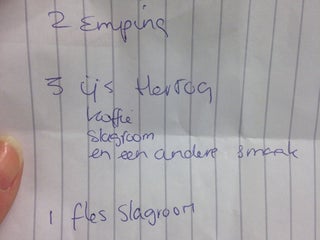 2 Emping
3 ijs Hertog
koffie
slagroom
en een andere smaak
1 fles slagroom